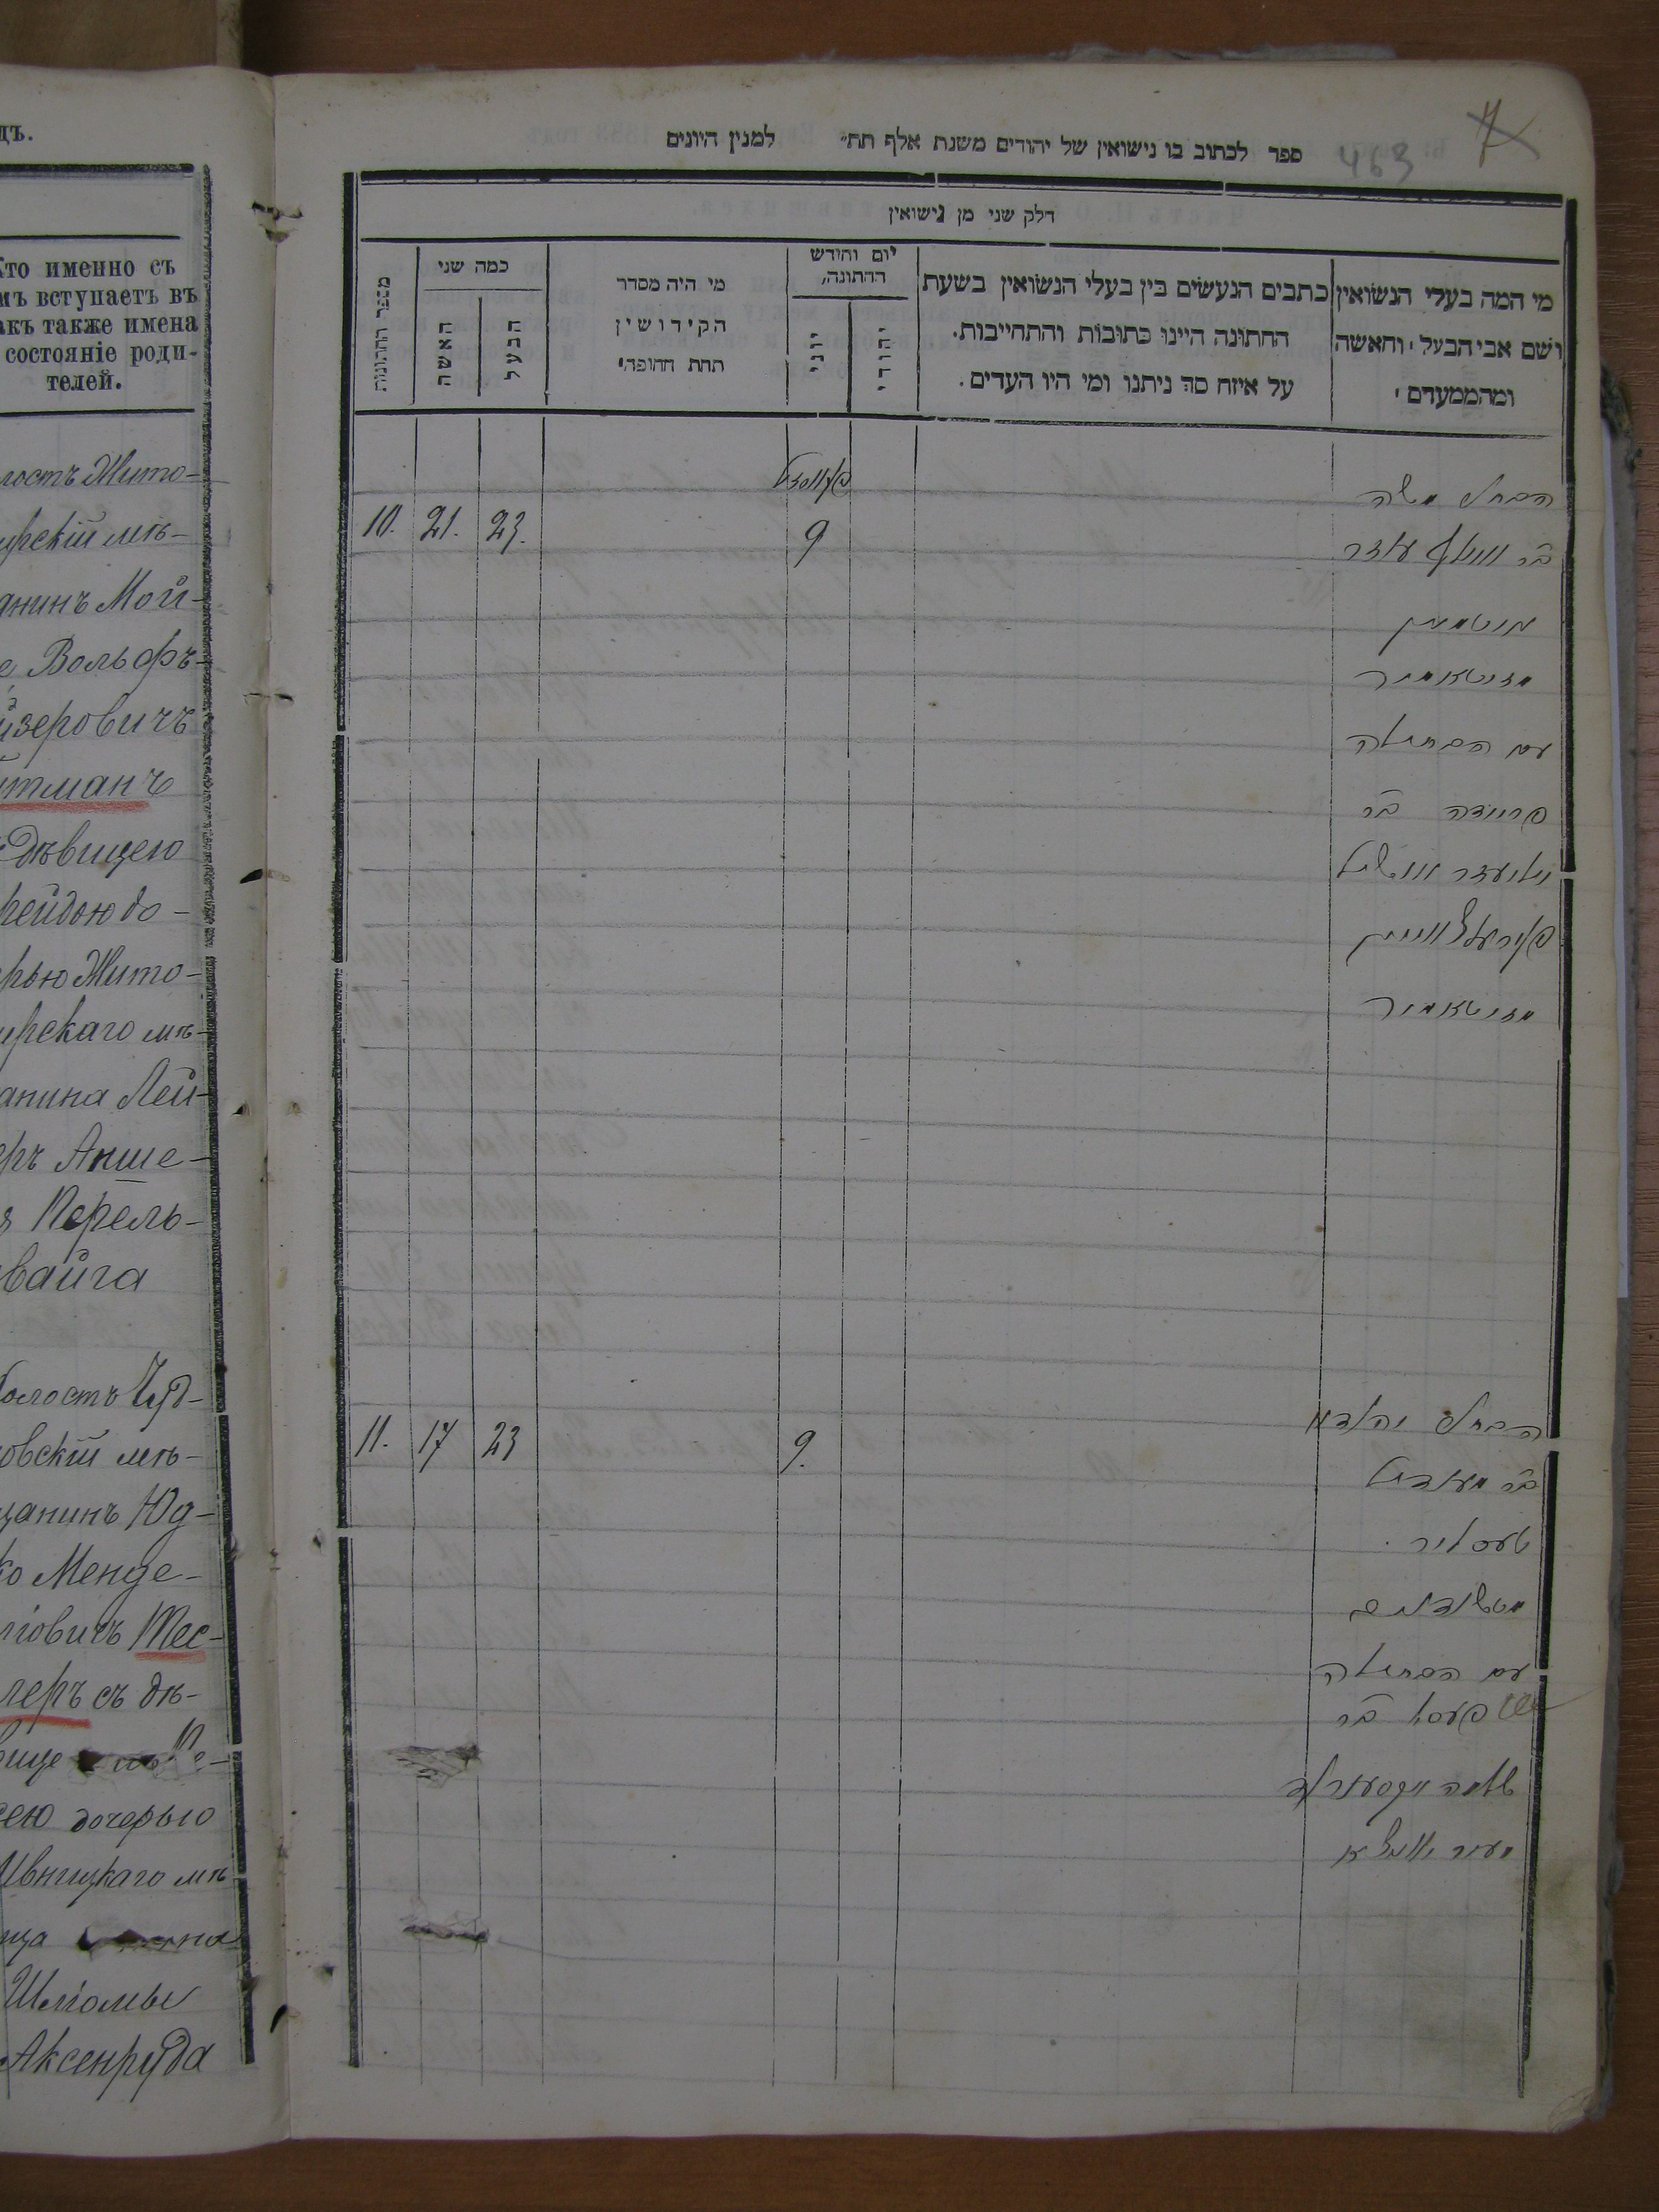 дъ.
Кто именно съ
мъ вступаетъ въ
акъ также имена
состояніе роди-
телей.
лостъ Жито-
ирскій мѣ-
анинъ Мой-
Вольфъ-
йзеровичъ
тманъ
дѣвицею
рейдою до-
ерью Жито-
ирскаго мѣ-
анина Лей-
еръ Анше-
Перель-
вайга
олостъ Чуд-
овскій мѣ-
щанинъ Юд-
ко Менде-
ліовичъ Тес-
леръ съ дѣ-
вице
сею дочерью
Ивницкаго мѣ
Шліомы
Аксенруда
463
ספר לכתוב בו נישואין של יהודים משנת אלף תת״ למנין היונים
חלק שני מן נישואין
מי המה בעלי הנשואין
ושם אבי הבעל והאשה
ומהממעדם
כתבים הנעשים בין בעלי הנשואין בשעת
החתונה היינו כתובות והתחייבות.
על איזה סך ניתנו ומי היו העדים.
יום וחודש
החתונה,
יהודי
יוני
מי היה מסדר
הקידושין
תחת החופה
כמה שני
הבעל
האשה
מספר החתונות
10. 21. 23. 9
הבחור משה
ב״ר וואלף עוזר
מזיטאמיר
עם הבתולה
פריידה ב״ר
פערעלצווייג
מזיטאמיר
11. 17 23 9.
הבחור יהודא
ב״ר מענדיל
טעסליר
מטשודנוב
עם הבתולה
פעסא ב״ר
שלמה אקסענרוד